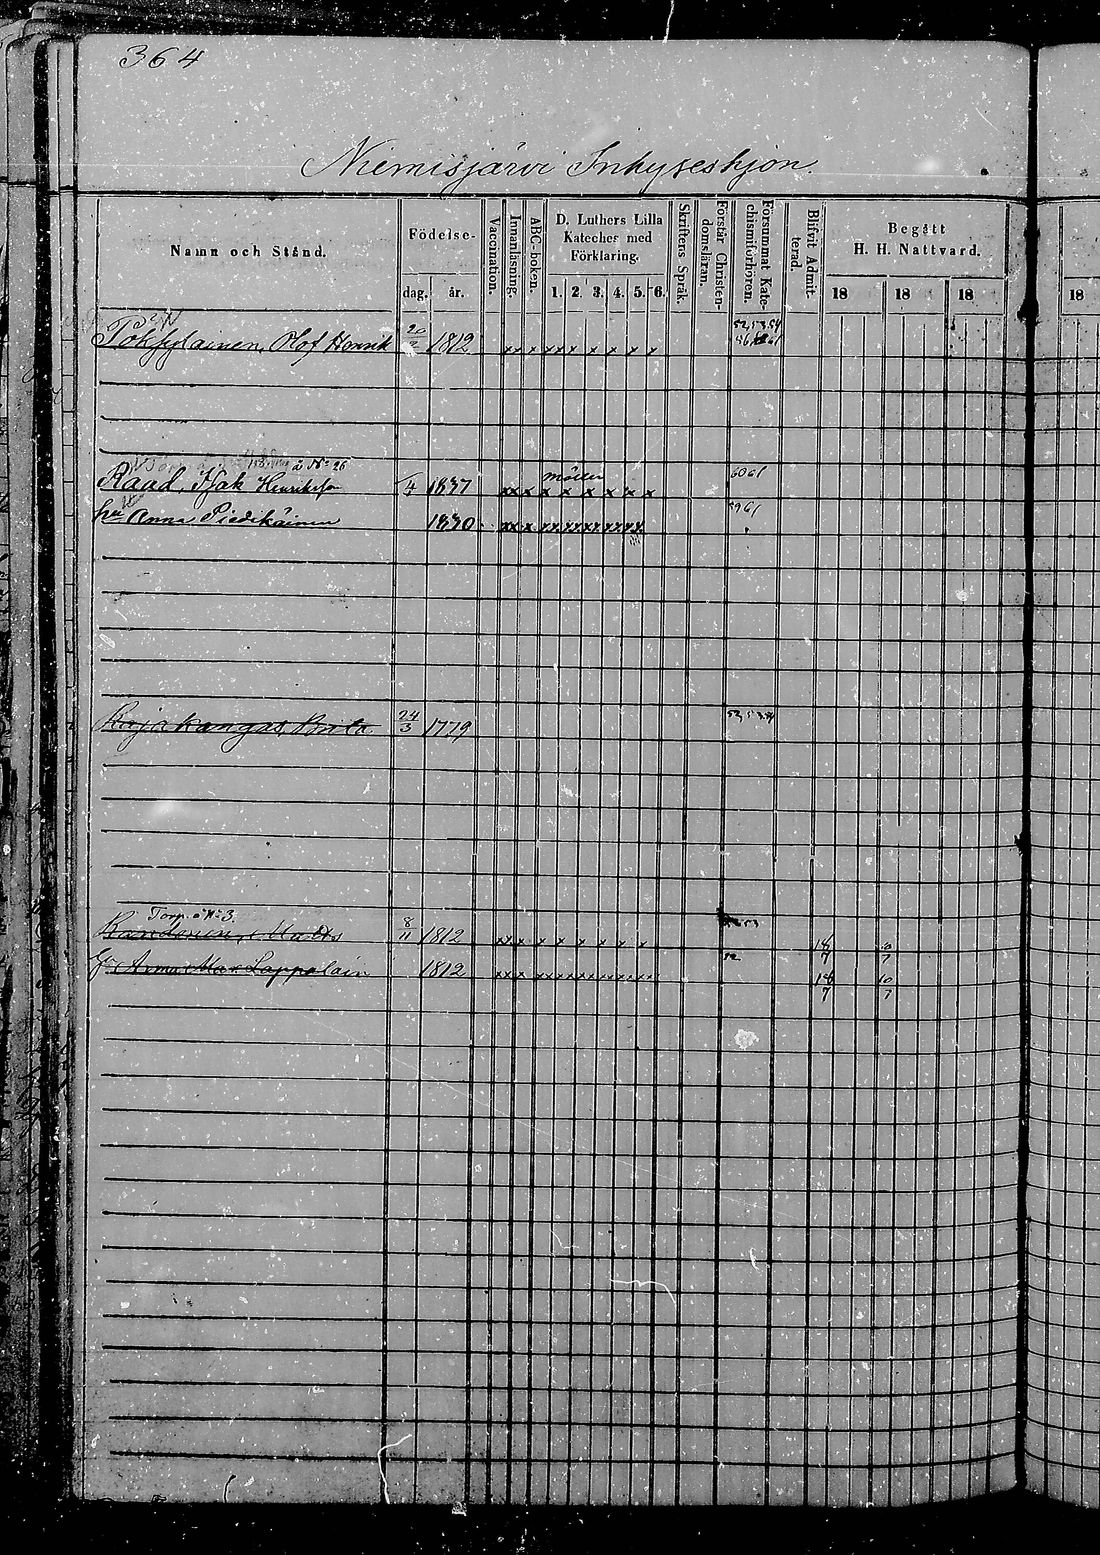 364
Niemisjärvi Inhyseshjon.
Namn och Stånd.
Födelse-
dag. år.
Vaccination.
Innanläsning.
ABC-boken.
D. Luthers Lilla
Kateches med
Förklaring.
1. 2. 3. 4. 5. 6.
Skriftens Språk.
Förstår Christen-
domsläran.
Försummat Kate-
chismiförhören.
Blifvit Admit-
terad.
Begått
H. H. Nattvard.
18 18 18
18
52,53,54
Pöksyläinen, Olof Henrik 1812 x x x x x x x x x x
à No 26
Raad, Isak Henriksson 4 1837 xx x x x x x x x 6061
Anna Piedikäinen 1830
Rajakangas Brita 24/3 1779 52,53,54
Torp. à No 3.
Randonen, Matts 8/11 1812 53
Anna Mar. Lappalain 1812 52
18 10
7 7